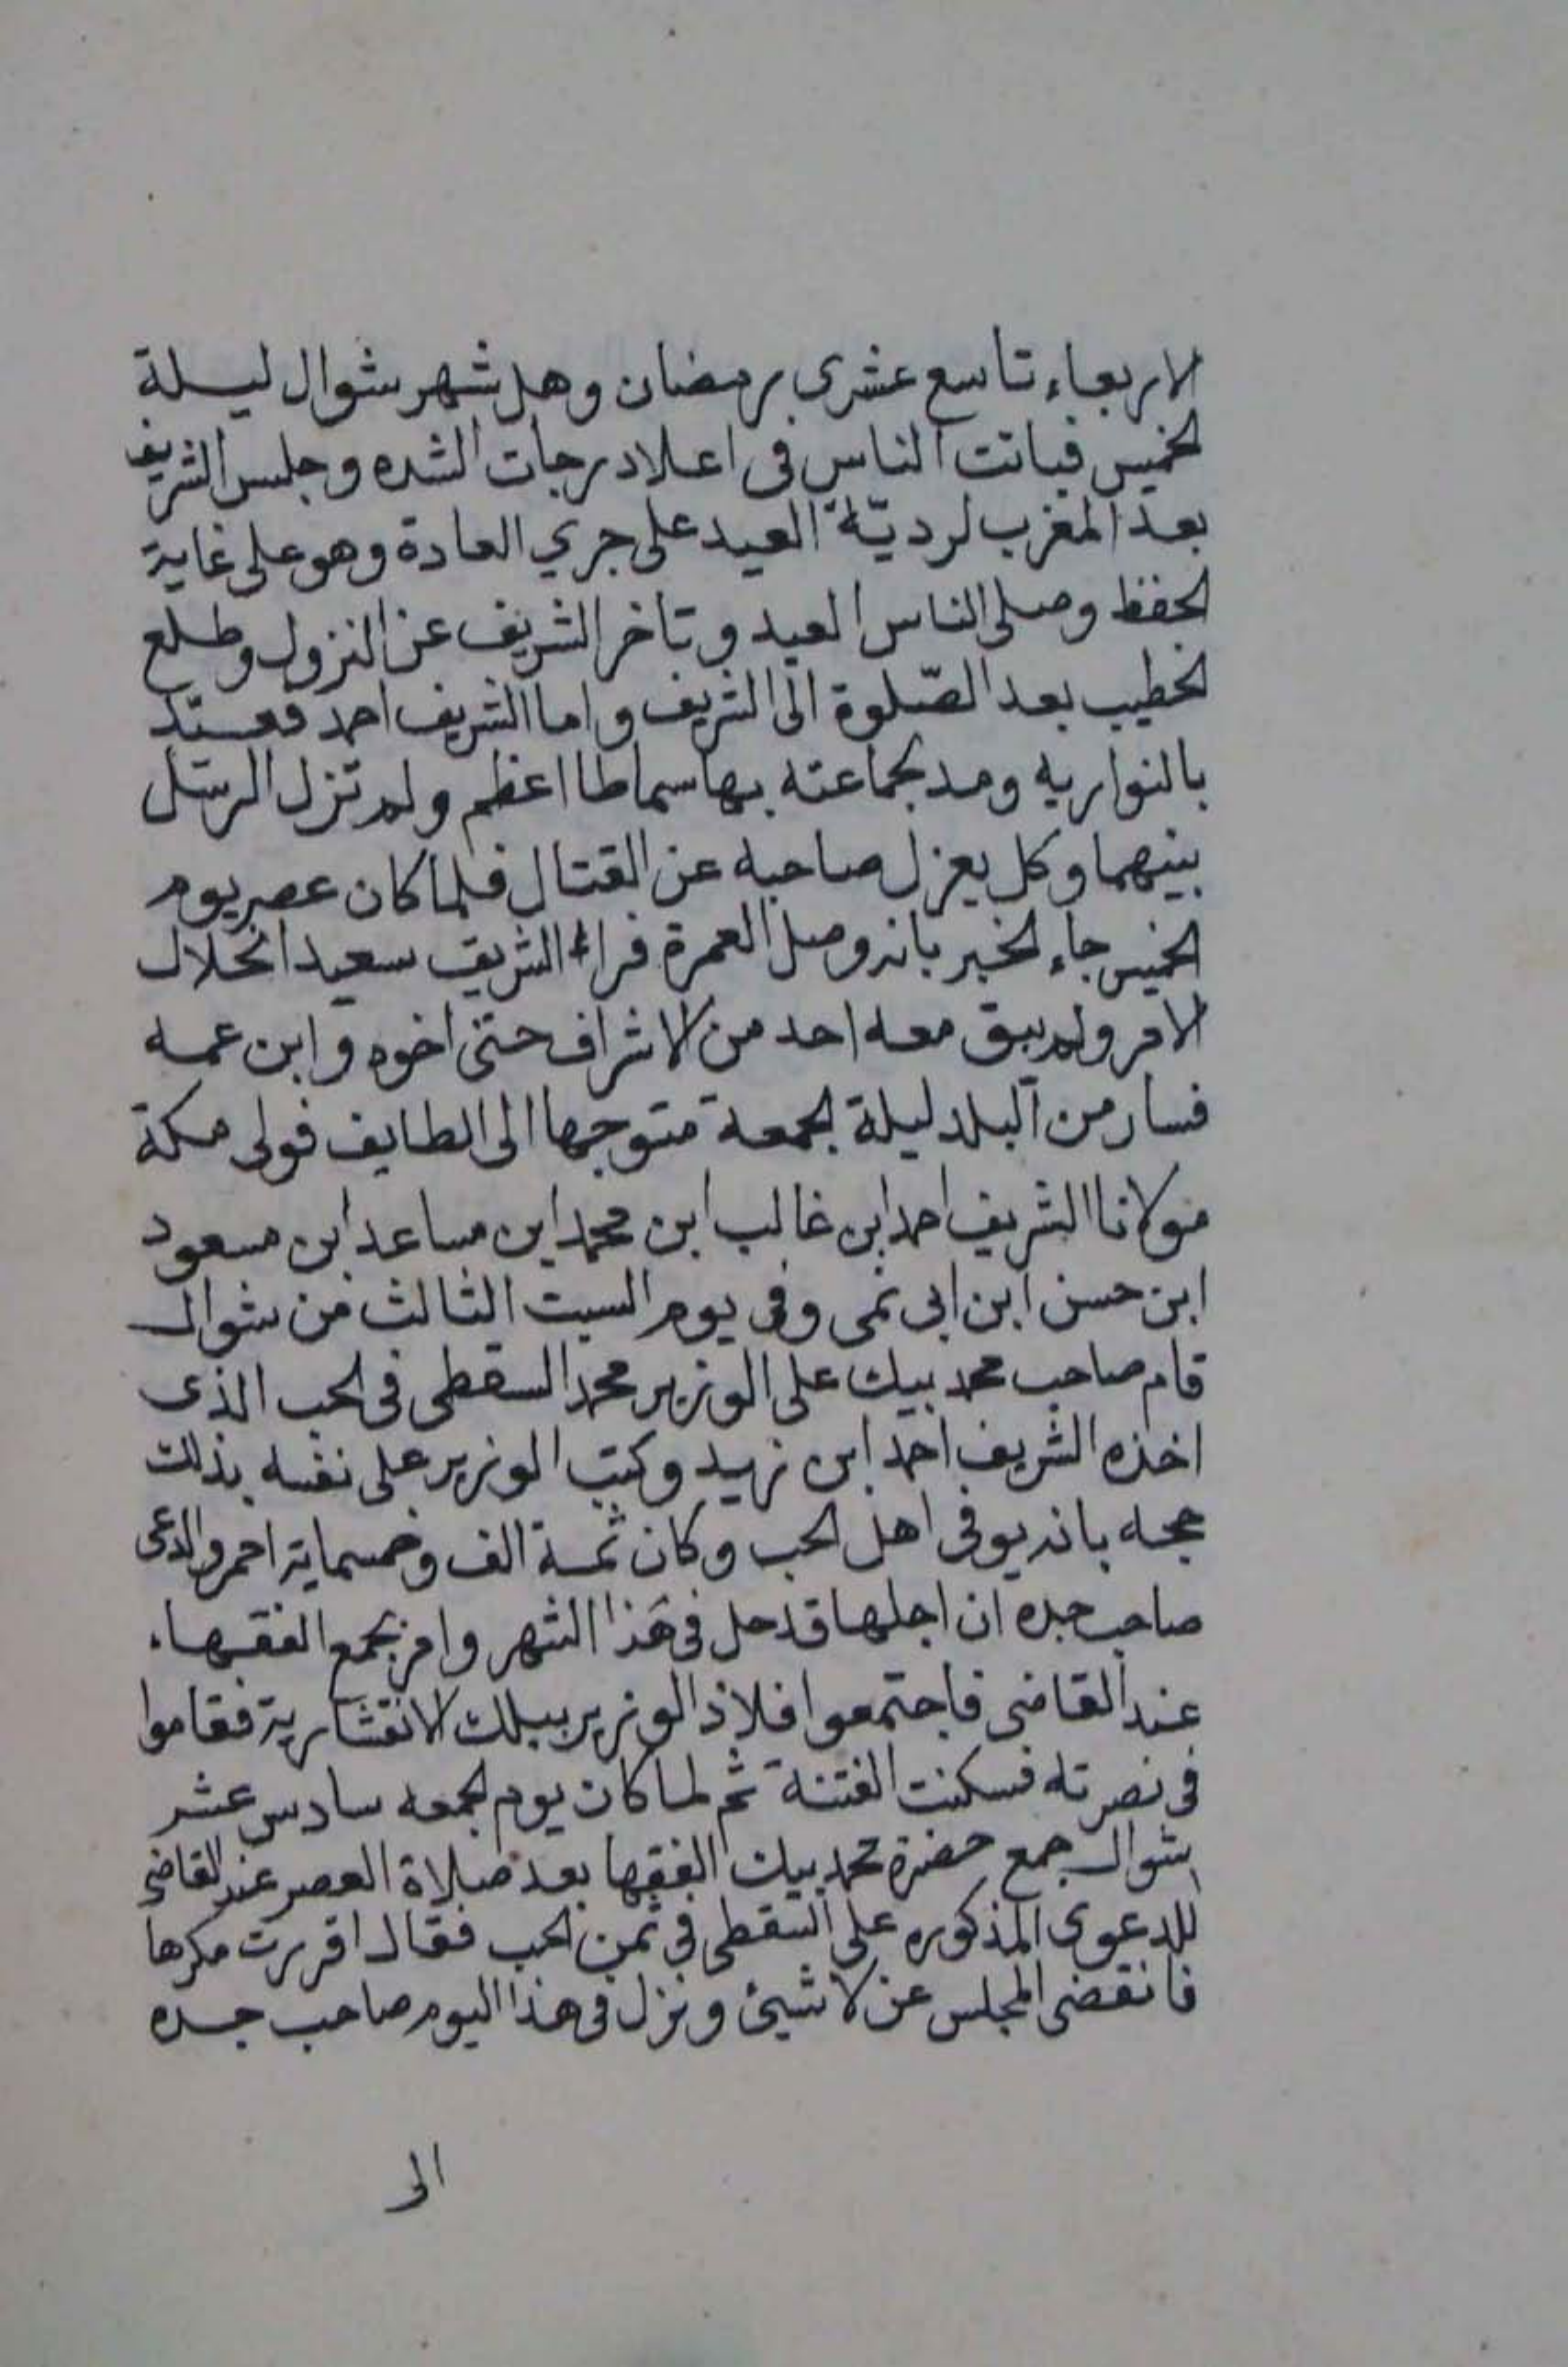 الاربعاء تاسع عشرى رمضان وهل شهر شوال ليلة
الخميس فباتت الناس فى اعلا درجات الشده وجلس الشريف
بعد المغرب لرديّة العيد على جري العادة وهو على غاية
الحفظ وصلى الناس العيد وتاخر الشريف عن النزول وطلع
الخطيب بعد الصّلوة الى الشريف واما الشريف احمد فعيّد
بالنواريه ومد بجماعته بها سماطا اعظم ولم تزل الرسل
بينهما وكل يعزل صاحبه عن القتال فلما كان عصر يوم
الخميس جاء الخبر بانه وصل العمرة فراء الشريف سعيد انحلال
الامر ولم يبق معه احد من الاشراف حتى اخوه وابن عمه
فسار من البلد ليلة الجمعة متوجها الى الطايف فولى مكة
مولانا الشريف احمد ابن غالب ابن محمد ابن مساعد ابن مسعود
ابن حسن ابن ابى نمى وفى يوم السبت الثالث من شوال
قام صاحب محمد بيك على الوزير محمد السقطى فى الحب الذى
اخذه الشريف احمد ابن زيد وكتب الوزير على نفسه بذلك
حجه بانه يوفى اهل الحب وكان ثمنه الف وخمسماية احمر وادعى
صاحب جده ان اجلها قد حل فى هذا الشهر وامر بجمع الفقهاء
عند القاضى فاجتمعوا فلاذ الوزير ببيلك الانقشارية فقاموا
فى نصرته فسكنت الفتنة ثم لما كان يوم الجمعه سادس عشر
شوال جمع حضرة محمد بيك الفقها بعد صلاة العصر عند القاضى
للدعوى المذكوره على السقطى فى ثمن الحب فقال اقررت مكرها
فانقضى المجلس عن لا شيئ ونزل فى هذا اليوم صاحب جده
الى